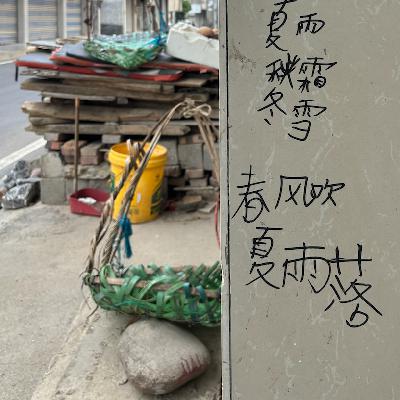 夏雨
秋霜
冬雪
春风吹
夏雨落